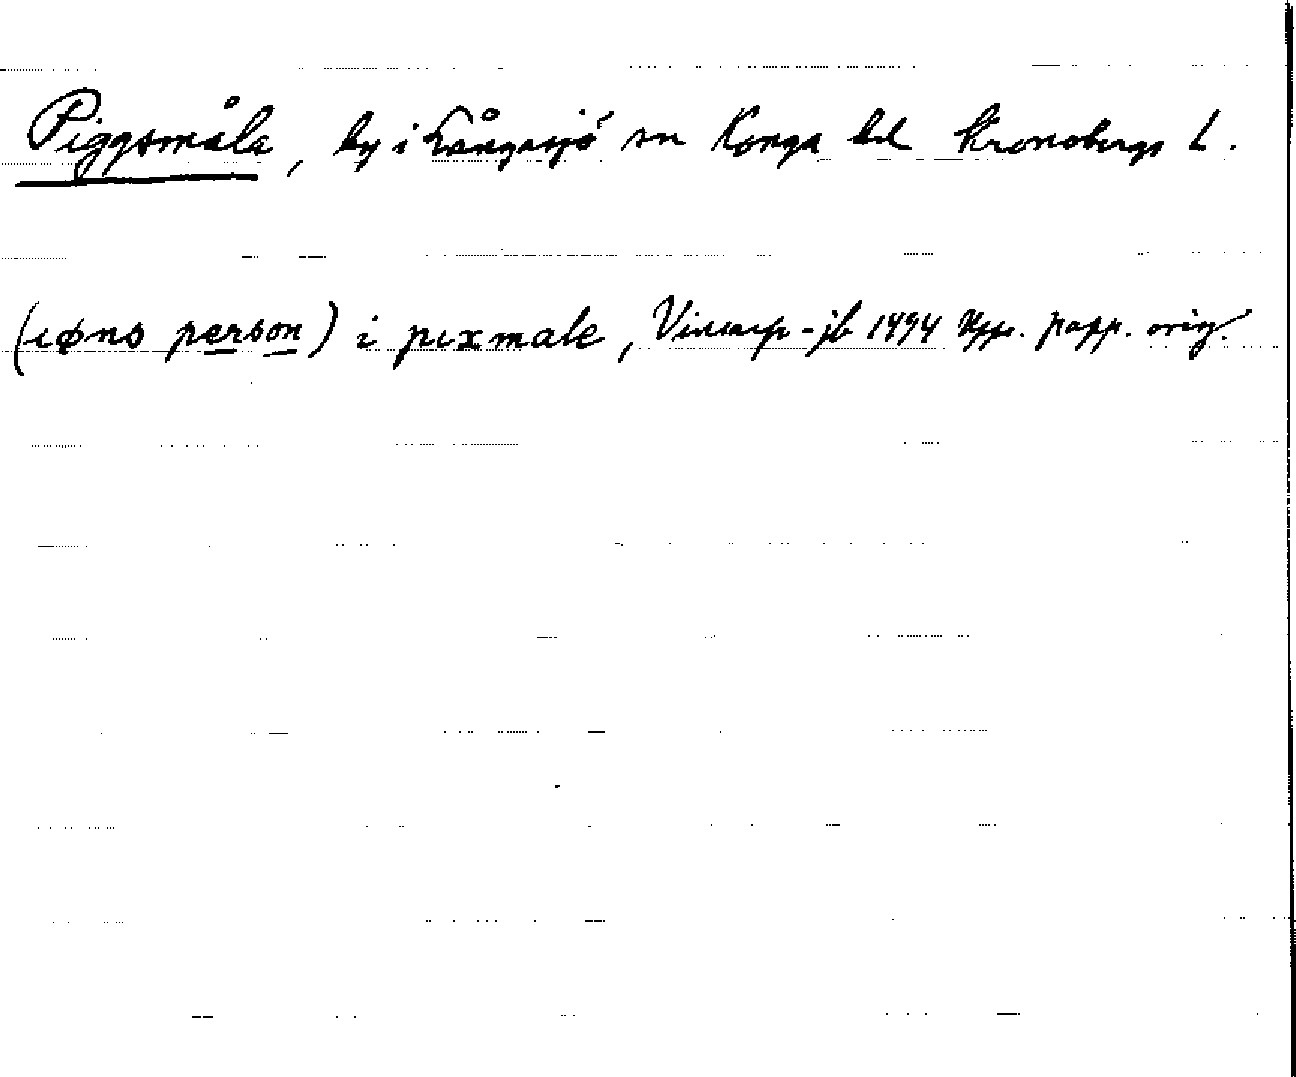 Piggsmåla, by i Långasjö sn Konga hd Kronobergs l.
(iøns person) i pixmale, Vinarp-jb 1494 Upps. papp. orig.